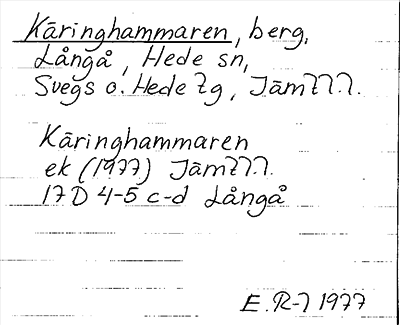 Käringhammaren, berg,
Långå, Hede sn,
Svegs o. Hede tg, Jämtl.
Käringhammaren
ek (1977) Jämtl.
17D 4-5 c-d Långå
E.R-7 1977